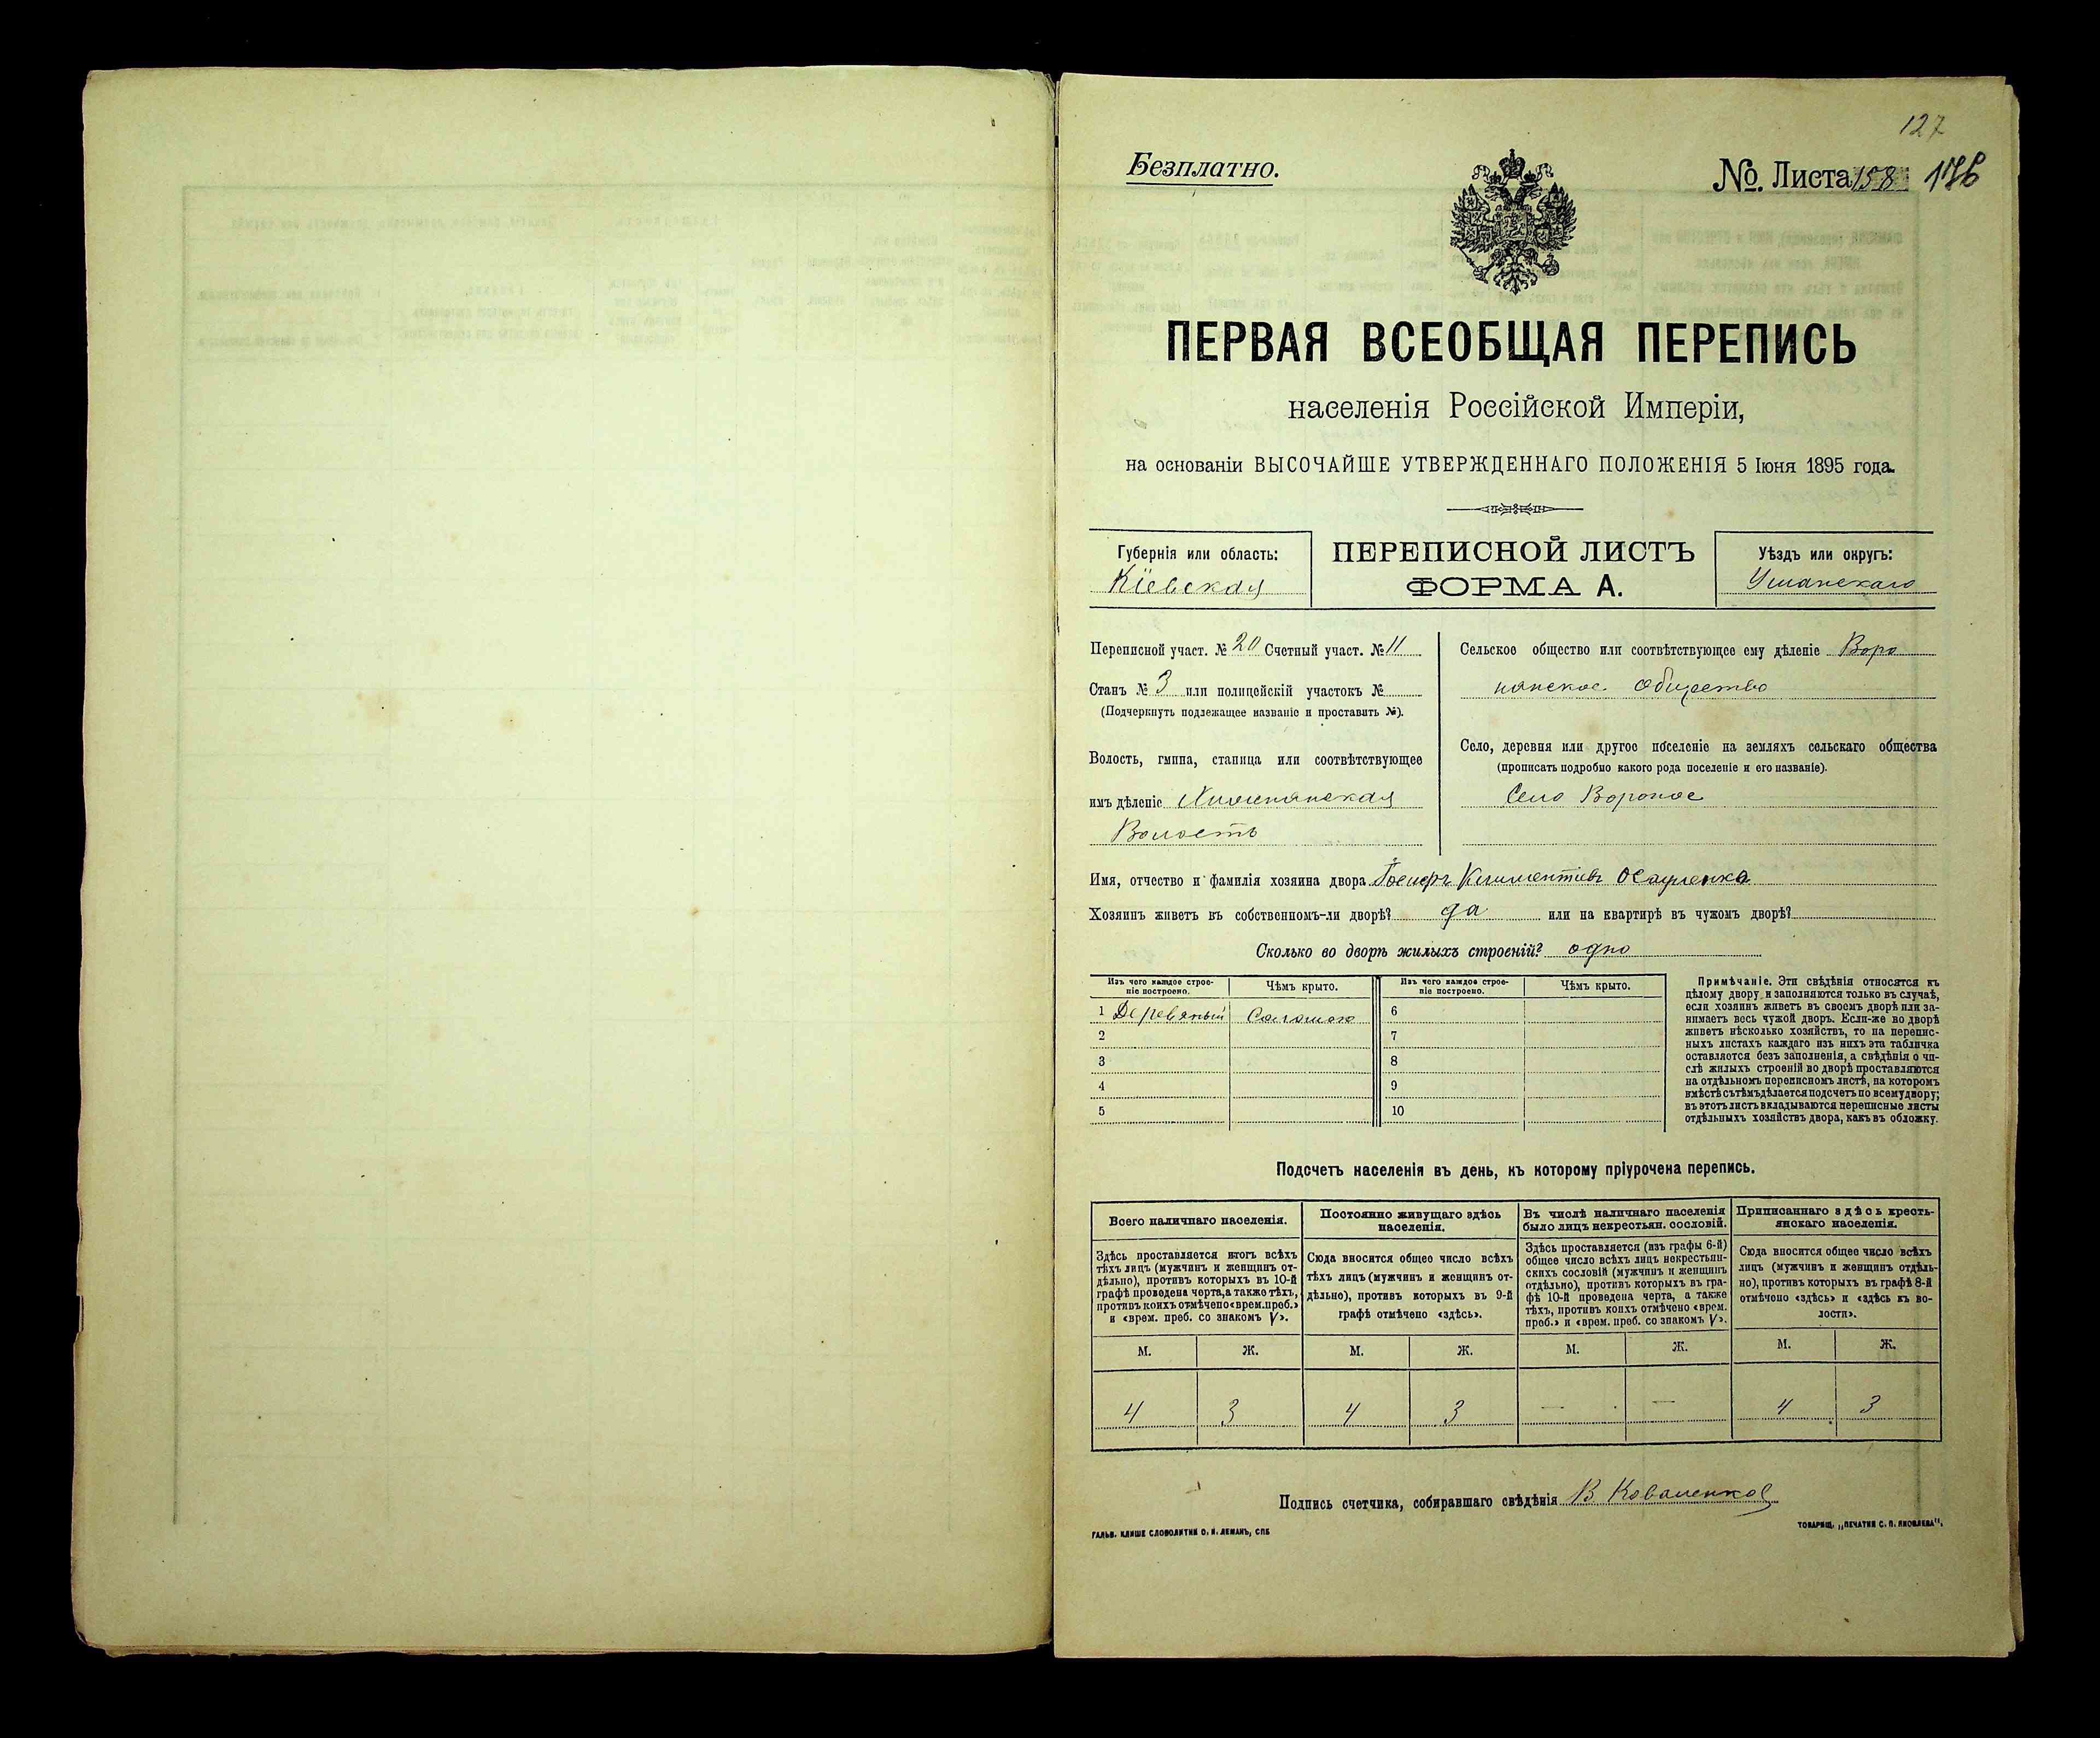 127
Безплатно.
№. Листа 158 176
ПЕРВАЯ ВСЕОБЩАЯ ПЕРЕПИСЬ
населенія Россійской Имперіи,
на основаніи ВЫСОЧАЙШЕ УТВЕРЖДЕННАГО ПОЛОЖЕНІЯ 5 Іюня 1895 года.
Губернія или область:
Кіевская
ПЕРЕПИСНОЙ ЛИСТЪ
ФОРМА А.
Уѣздъ или округъ:
Уманскаго
Переписной участ. № 20 Счетный участ. № 11
Станъ № 3 или полицейскій участокъ №
(Подчеркнуть подлежащее названіе и проставить №).
Волость, гмина, станица или соотвѣтствующее
имъ дѣленіе
Волость
Сельское общество или соотвѣтствующее ему дѣленіе Воро
нянское Общество
Село, деревня или другое поселеніе на земляхъ сельскаго общества
(прописать подробно какого рода поселеніе и его названіе).
Село Вороное
Имя, отчество и фамилія хозяина двора Іосифъ Климентіевъ Осауленко
Хозяинъ живетъ въ собственномъ-ли дворѣ? да или на квартирѣ въ чужомъ дворѣ?
Сколько во дворѣ жилыхъ строеній? одно
Изъ чего каждое строе-
ніе построено.
Чѣмъ крыто.
Изъ чего каждое строе-
ніе построено.
Чѣмъ крыто.
1 Деревяный Соломою 6
2 7
3 8
4 9
5 10
Примѣчаніе. Эти свѣдѣнія относятся къ
цѣлому двору и заполняются только въ случаѣ,
если хозяинъ живетъ въ своемъ дворѣ или за-
нимаетъ весь чужой дворъ. Если-же во дворѣ
живетъ нѣсколько хозяйствъ, то на перепис-
ныхъ листахъ каждаго изъ нихъ эта табличка
оставляется безъ заполненія, а свѣдѣнія о чи-
слѣ жилыхъ строеній во дворѣ проставляются
на отдѣльномъ переписномъ листѣ, на которомъ
вмѣстѣ съ тѣмъ дѣлается подсчетъ по всему двору;
въ этотъ листъ вкладываются переписные листы
отдѣльныхъ хозяйствъ двора, какъ въ обложку.
Подсчетъ населенія въ день, къ которому пріурочена перепись.
Всего наличнаго населенія.
Здѣсь проставляется итогъ всѣхъ
тѣхъ лицъ (мужчинъ и женщинъ от-
дѣльно), противъ которыхъ въ 10-й
графѣ проведена черта, а также тѣхъ,
противъ коихъ отмѣчено «врем. преб.»
и «врем. преб. со знакомъ V».
Постоянно живущаго здѣсь
населенія.
Сюда вносится общее число всѣхъ
тѣхъ лицъ (мужчинъ и женщинъ от-
дѣльно), противъ которыхъ въ 9-й
графѣ отмѣчено «здѣсь».
Въ числѣ наличнаго населенія
было лицъ некрестьян. сословій.
Здѣсь проставляется (изъ графы 6-й)
общее число всѣхъ лицъ некрестьян-
скихъ сословій (мужчинъ и женщинъ
отдѣльно), противъ которыхъ въ гра-
фѣ 10-й проведена черта, а также
тѣхъ, противъ коихъ отмѣчено «врем.
преб.» и «врем. преб. со знакомъ V».
Приписаннаго здѣсь кресть-
янскаго населенія.
Сюда вносится общее число всѣхъ
лицъ (мужчинъ и женщинъ отдѣль-
но), противъ которыхъ въ графѣ 8-й
отмѣчено «здѣсь» и «здѣсь къ во-
лости».
М. Ж. М. Ж. М. Ж. М. Ж.
4 3 4 3 — — 4 3
Подпись счетчика, собиравшаго свѣдѣнія В Коваленков
ГАЛЬВ. КЛИШЕ СЛОВОЛИТНИ О. И. ЛЕМАНЪ, СПБ
ТОВАРИЩ. „ПЕЧАТНЯ С. П. ЯКОВЛЕВА".